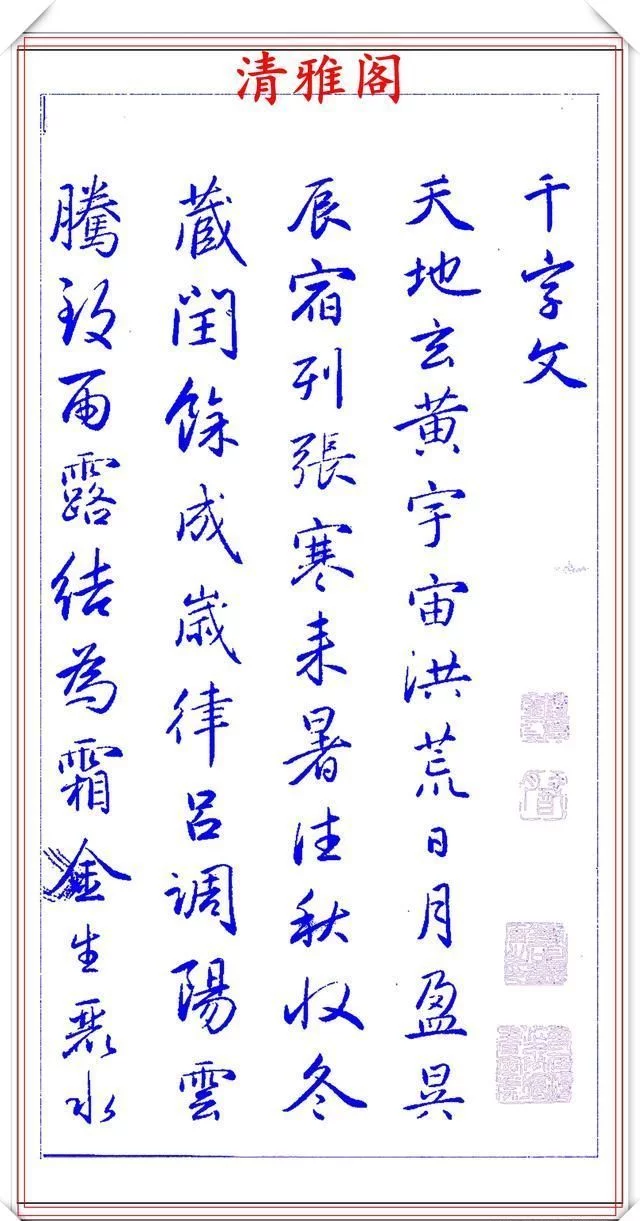 清雅阁
千字文
天地玄黄宇宙洪荒日月盈昃
辰宿列張寒来暑往秋收冬
蔵閏餘成歲律吕調陽雲
騰致雨露結為霜金生麗水